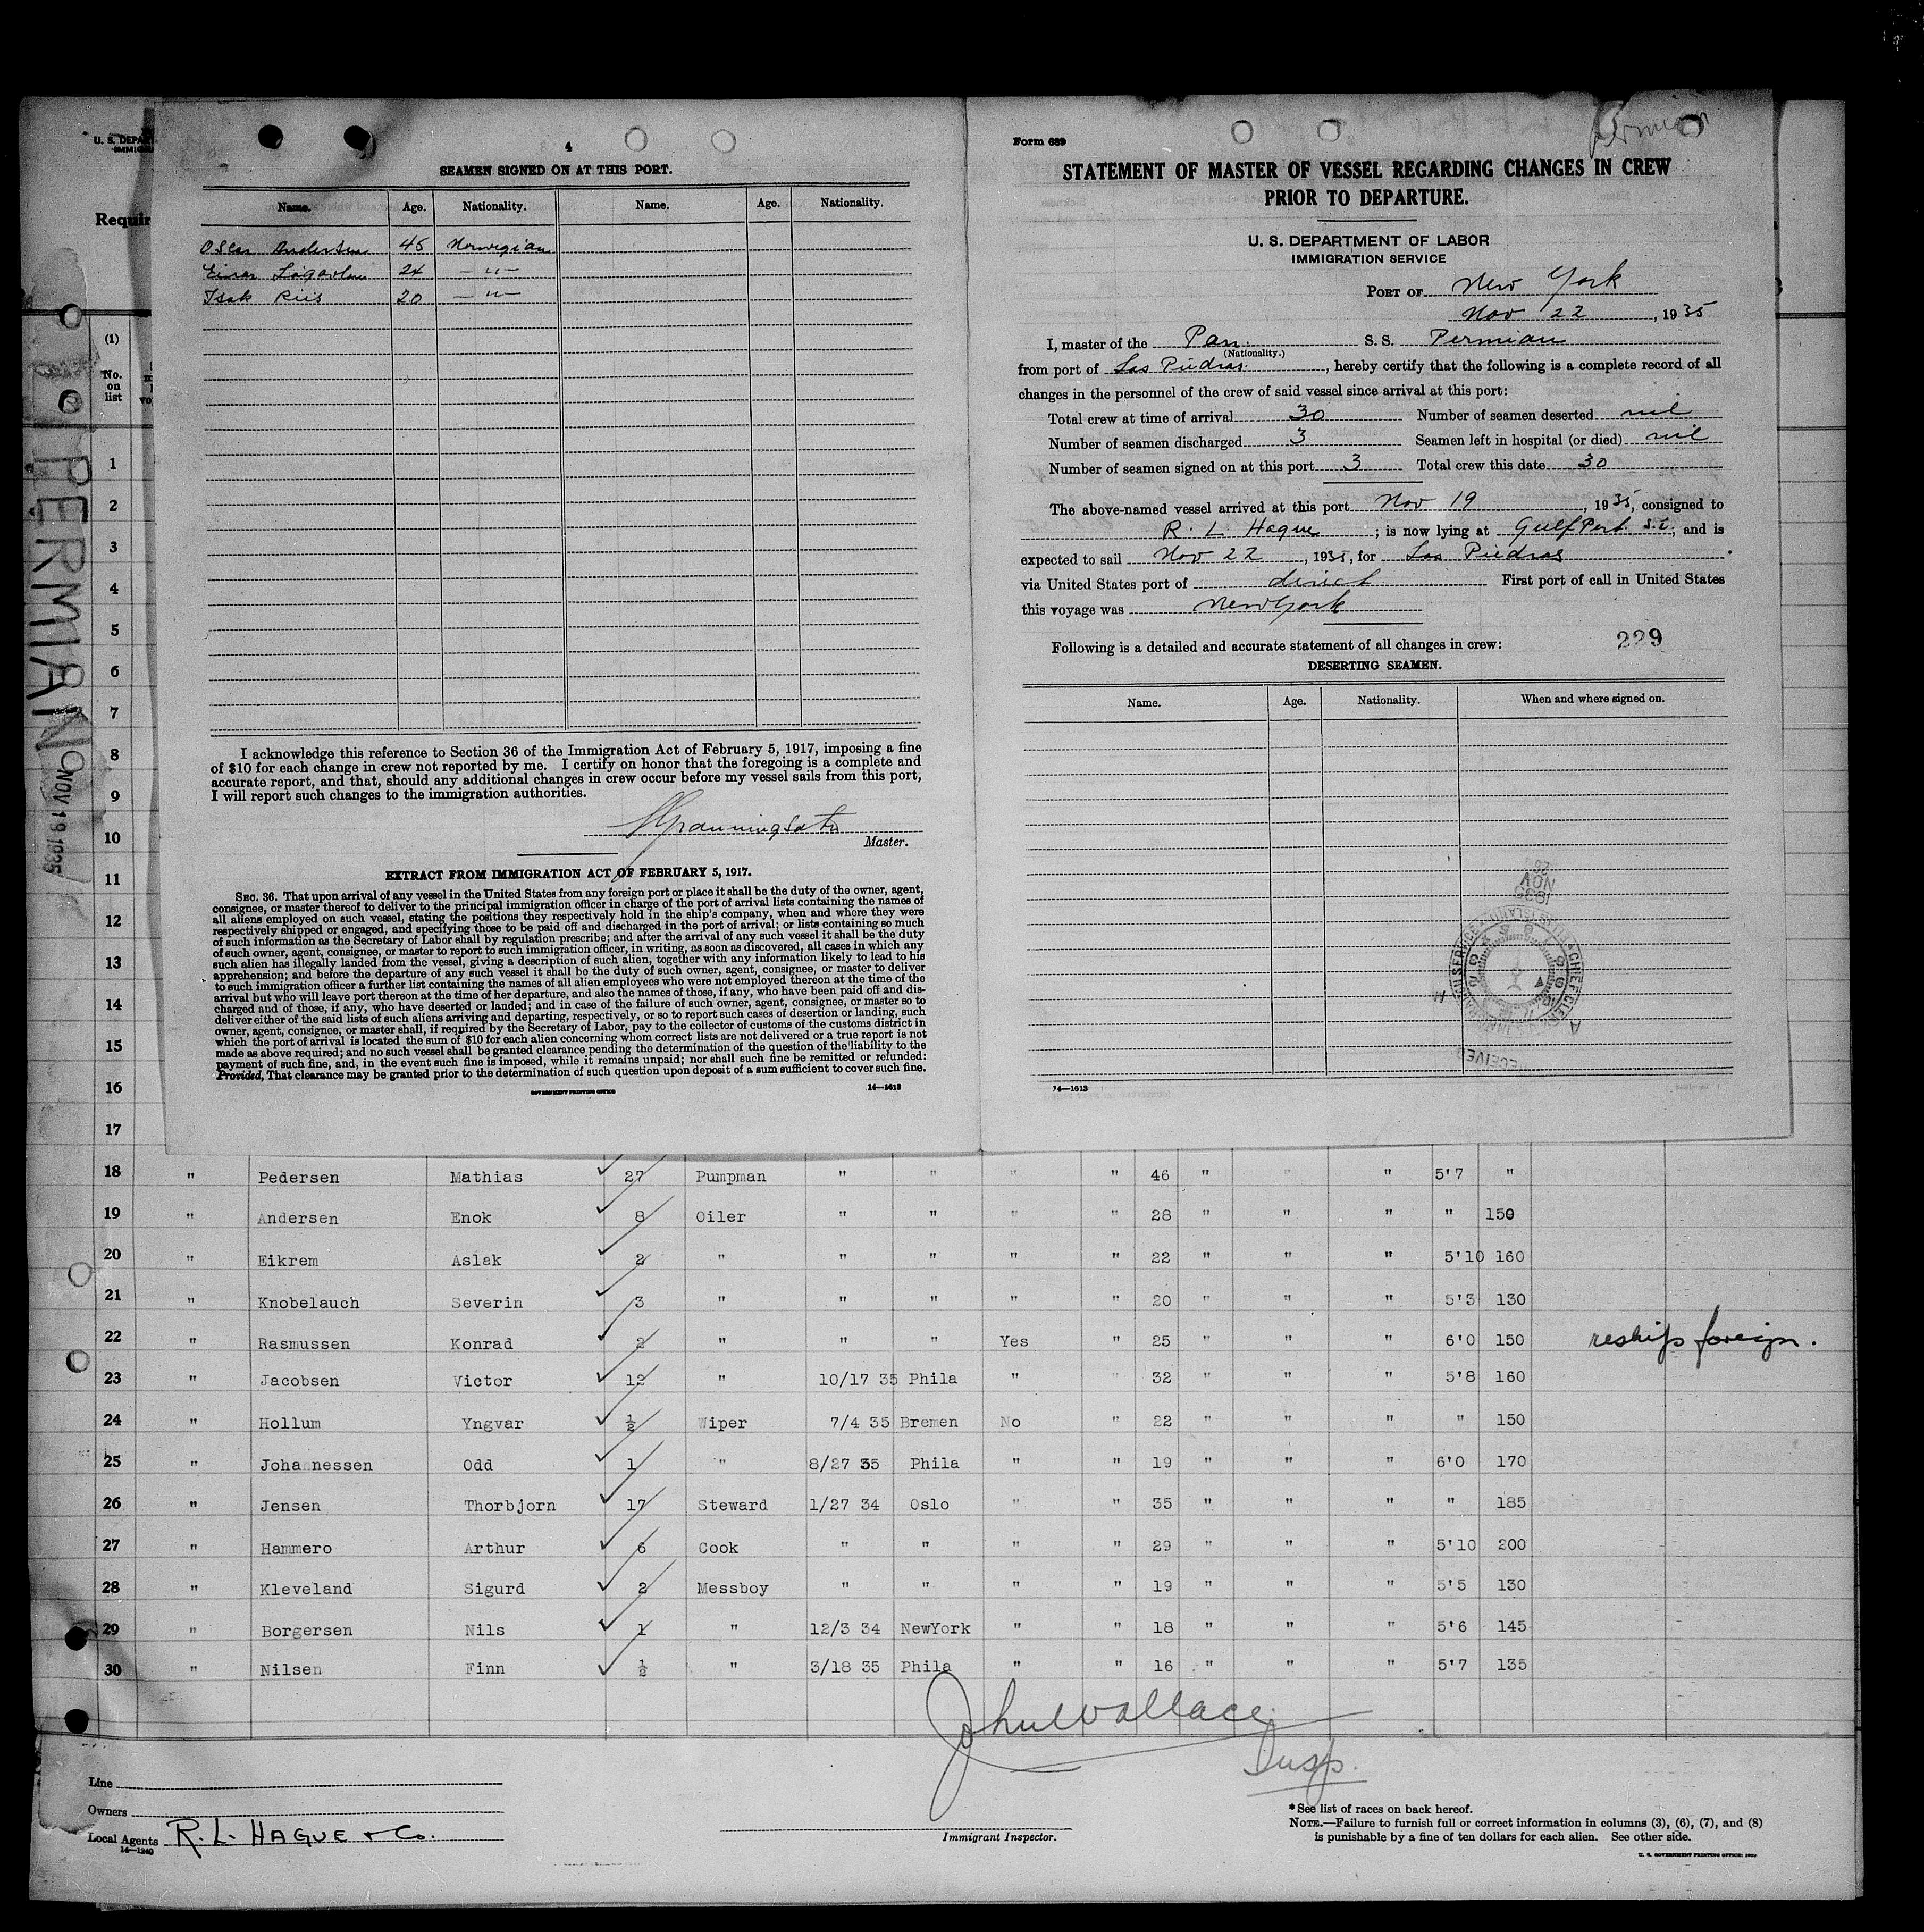 4
SEAMEN SIGNED ON AT THIS PORT.
Name. Age. Nationality. Name. Age. Nationality.
Oscar Andersen 45 Norwegian
Einar 24 — " —
Isak Riis 20 — " —
I acknowledge this reference to Section 36 of the Immigration Act of February 5, 1917, imposing a fine
of $10 for each change in crew not reported by me. I certify on honor that the foregoing is a complete and
accurate report, and that, should any additional changes in crew occur before my vessel sails from this port,
I will report such changes to the immigration authorities.
Master.
EXTRACT FROM IMMIGRATION ACT OF FEBRUARY 5, 1917.
SEC. 36. That upon arrival of any vessel in the United States from any foreign port or place it shall be the duty of the owner, agent,
consignee, or master thereof to deliver to the principal immigration officer in charge of the port of arrival lists containing the names of
all aliens employed on such vessel, stating the positions they respectively hold in the ship's company, when and where they were
respectively shipped or engaged, and specifying those to be paid off and discharged in the port of arrival; or lists containing so much
of such information as the Secretary of Labor shall by regulation prescribe; and after the arrival of any such vessel it shall be the duty
of such owner, agent, consignee, or master to report to such immigration officer, in writing, as soon as discovered, all cases in which any
such alien has illegally landed from the vessel, giving a description of such alien, together with any information likely to lead to his
apprehension; and before the departure of any such vessel it shall be the duty of such owner, agent, consignee, or master to deliver
to such immigration officer a further list containing the names of all alien employees who were not employed thereon at the time of the
arrival but who will leave port thereon at the time of her departure, and also the names of those, if any, who have been paid off and dis-
charged and of those, if any, who have deserted or landed; and in case of the failure of such owner, agent, consignee, or master so to
deliver either of the said lists of such aliens arriving and departing, respectively, or so to report such cases of desertion or landing, such
owner, agent, consignee, or master shall, if required by the Secretary of Labor, pay to the collector of customs of the customs district in
which the port of arrival is located the sum of $10 for each alien concerning whom correct lists are not delivered or a true report is not
made as above required; and no such vessel shall be granted clearance pending the determination of the question of the liability to the
payment of such fine, and, in the event such fine is imposed, while it remains unpaid; nor shall such fine be remitted or refunded:
Provided, That clearance may be granted prior to the determination of such question upon deposit of a sum sufficient to cover such fine.
GOVERNMENT PRINTING OFFICE 14—1613
Permian
Form 689
STATEMENT OF MASTER OF VESSEL REGARDING CHANGES IN CREW
PRIOR TO DEPARTURE.
U. S. DEPARTMENT OF LABOR
IMMIGRATION SERVICE
PORT OF New York
Nov 22, 1935
I, master of the Pan. S. S. Permian
(Nationality.)
from port of Las Piedras, hereby certify that the following is a complete record of all
changes in the personnel of the crew of said vessel since arrival at this port:
Total crew at time of arrival 30 Number of seamen deserted nil
Number of seamen discharged 3 Seamen left in hospital (or died) nil
Number of seamen signed on at this port 3 Total crew this date 30
The above-named vessel arrived at this port Nov 19, 1935, consigned to
R. L. Hague; is now lying at Gulfport S.I., and is
expected to sail Nov 22, 1935, for Las Piedras.
via United States port of direct First port of call in United States
this voyage was New York
Following is a detailed and accurate statement of all changes in crew: 229
DESERTING SEAMEN.
Name. Age. Nationality. When and where signed on.
NOV
1935
RECEIVED
14—1613
U. S. DEPA
IMMIG
Requir
(1)
No.
on
list
PERMIAN
NOV 19 1935
1
2
3
4
5
6
7
8
9
10
11
12
13
14
15
16
17
18 " Pedersen Mathias 27 Pumpman " " " " 46 " " " 5'7 "
19 " Andersen Enok 8 Oiler " " " " 28 " " " " 150
20 " Eikrem Aslak 2 " " " " " 22 " " " 5'10 160
21 " Knobelauch Severin 3 " " " " " 20 " " " 5'3 130
22 " Rasmussen Konrad 2 " " " Yes " 25 " " " 6'0 150 reships foreign.
23 " Jacobsen Victor 12 " 10/17 35 Phila " " 32 " " " 5'8 160
24 " Hollum Yngvar ½ Wiper 7/4 35 Bremen No " 22 " " " " 150
25 " Johannessen Odd 1 " 8/27 35 Phila " " 19 " " " 6'0 170
26 " Jensen Thorbjorn 17 Steward 1/27 34 Oslo " " 35 " " " " 185
27 " Hammero Arthur 6 Cook " " " " 29 " " " 5'10 200
28 " Kleveland Sigurd 2 Messboy " " " " 19 " " " 5'5 130
29 " Borgersen Nils 1 " 12/3 34 NewYork " " 18 " " " 5'6 145
30 " Nilsen Finn ½ " 3/18 35 Phila " " 16 " " " 5'7 135
John Wallace
Insp.
Line
Owners
Local Agents R. L. HAGUE & Co.
14—1240
Immigrant Inspector.
*See list of races on back hereof.
NOTE.—Failure to furnish full or correct information in columns (3), (6), (7), and (8)
is punishable by a fine of ten dollars for each alien. See other side.
U. S. GOVERNMENT PRINTING OFFICE